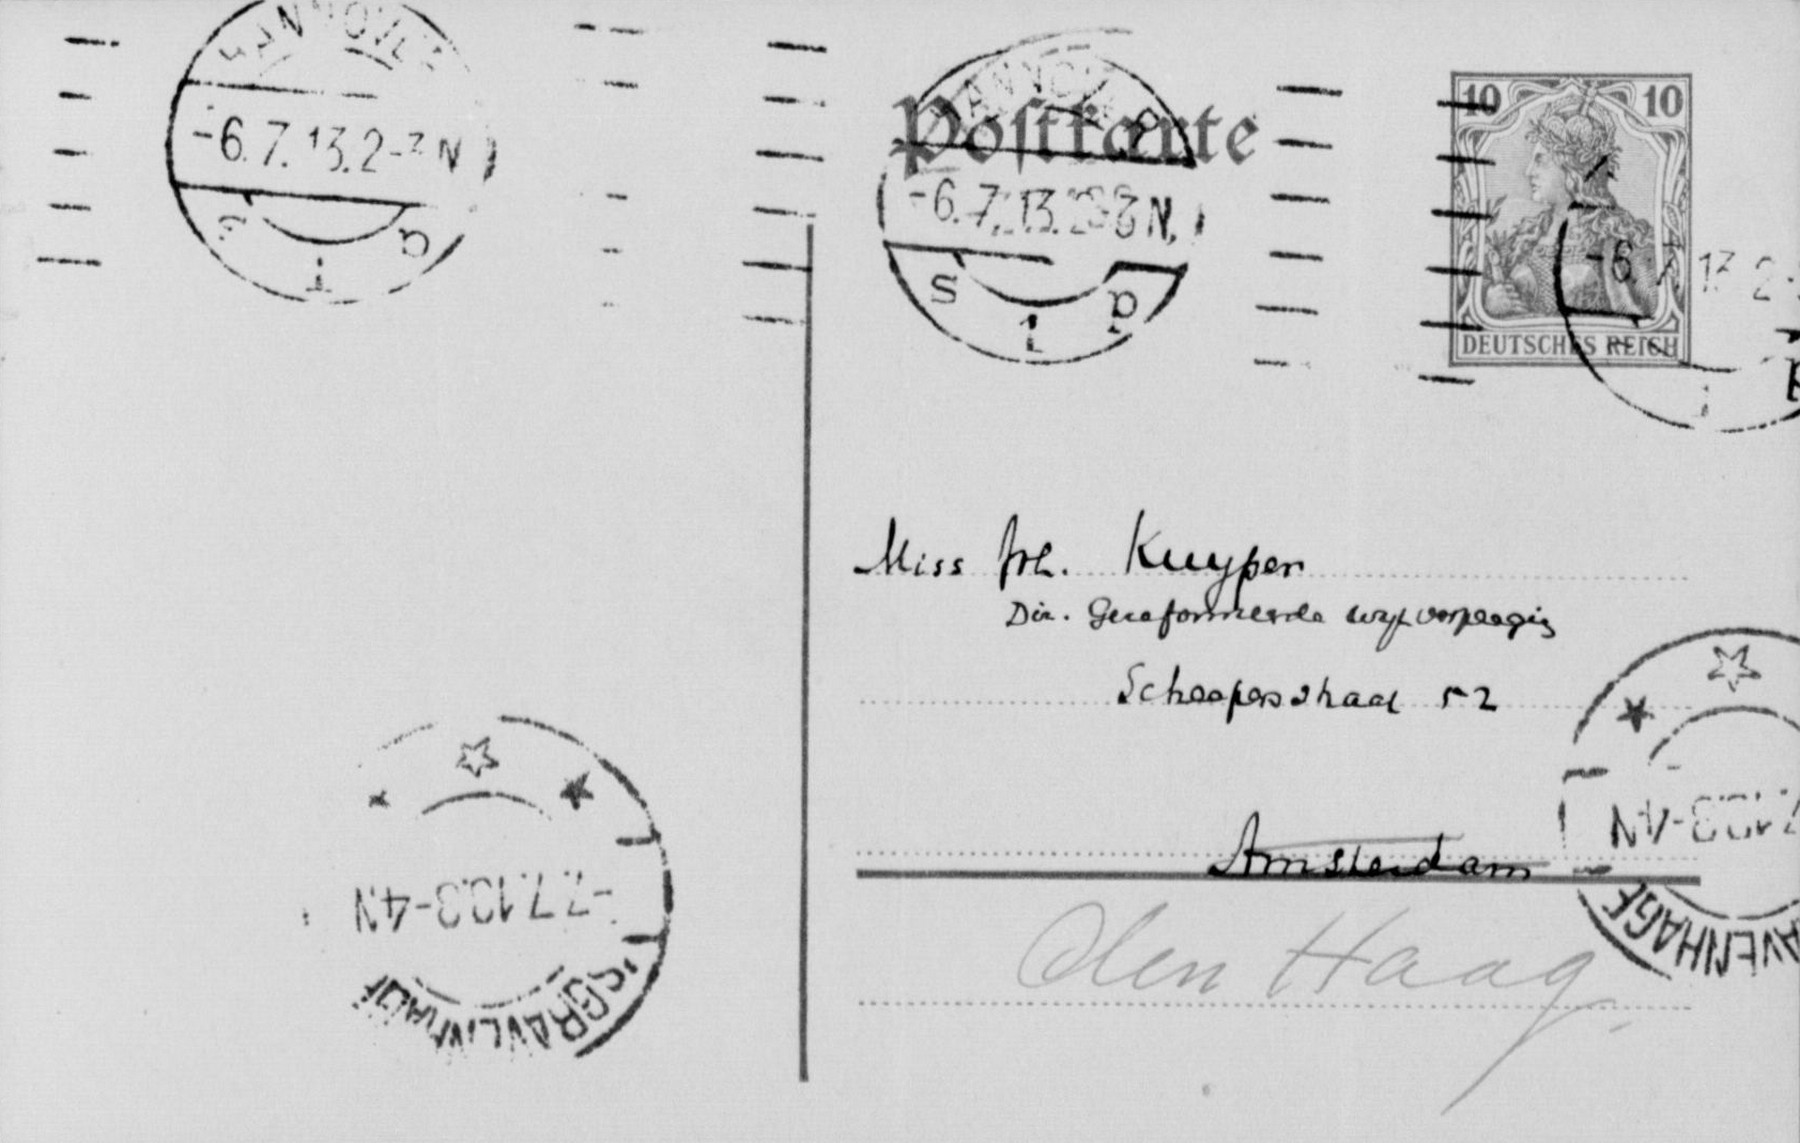 HANNOVER
-6.7.13.2-3 N
1
a
Postkarte
HANNOVER
-6.7.13. N.
s
1
a
10 10
DEUTSCHES REICH
-6.7 13 2-
Miss Joh. Kuyper
Dir. Gereformeerde
52
Amsterdam
Den Haag.
'SGRAVENHAGE
-7.7.13 3-4N
AVENHAGE
7.13 3-4N